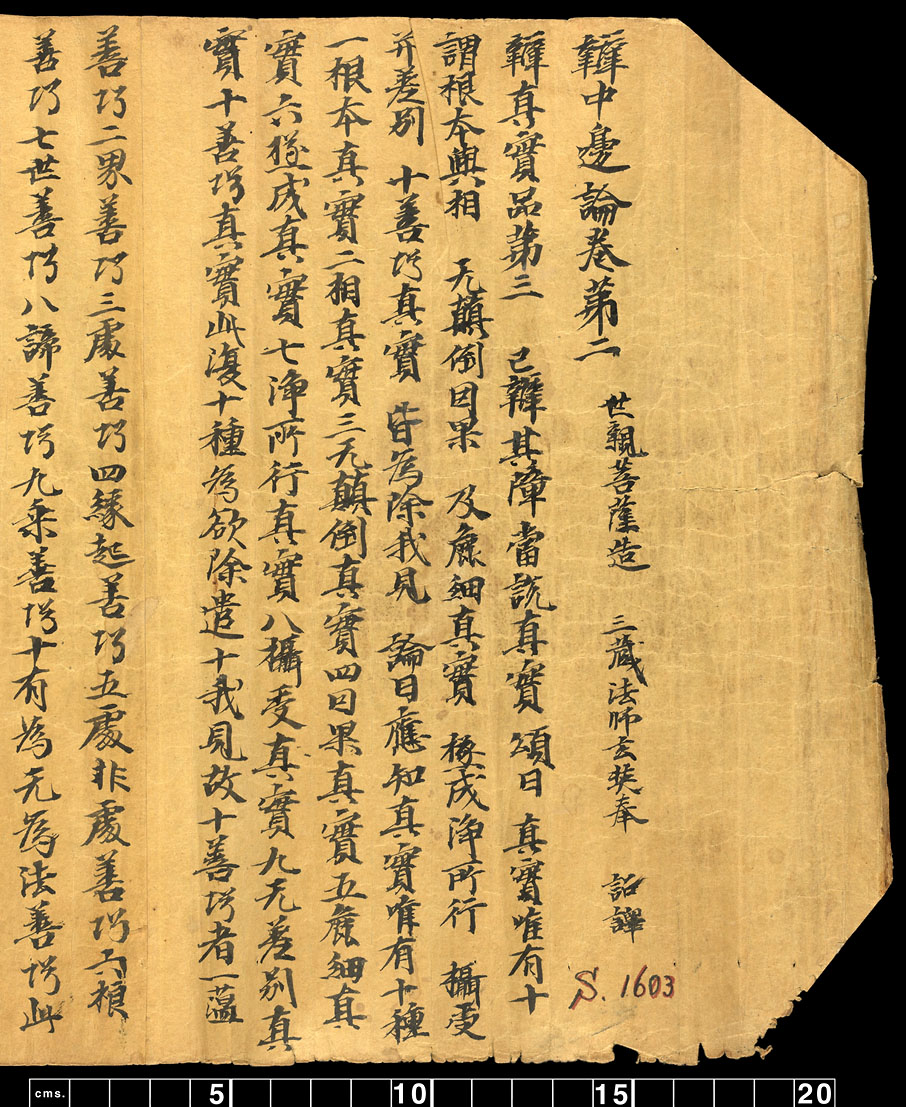 辯中邊論卷第二 世親菩薩造 三藏法師玄奘奉 詔譯
辯真實品第三 已辯其障當說真實 頌曰 真實唯有十
謂根本與相 无顛倒因果 及麁細真實 極成淨所行 攝受
并差別 十善巧真實 皆為除我見 論曰應知真實唯有十種
一根本真實二相真實三无顛倒真實四因果真實五麁細真
實六極成真實七淨所行真實八攝受真實九无差別真
實十善巧真實此復十種為欲除遣十我見故十善巧者一蘊
善巧二界善巧三處善巧四緣起善巧五處非處善巧六根
善巧七世善巧八諦善巧九乘善巧十有為无為法善巧此
S. 1603
cms. 5 10 15 20